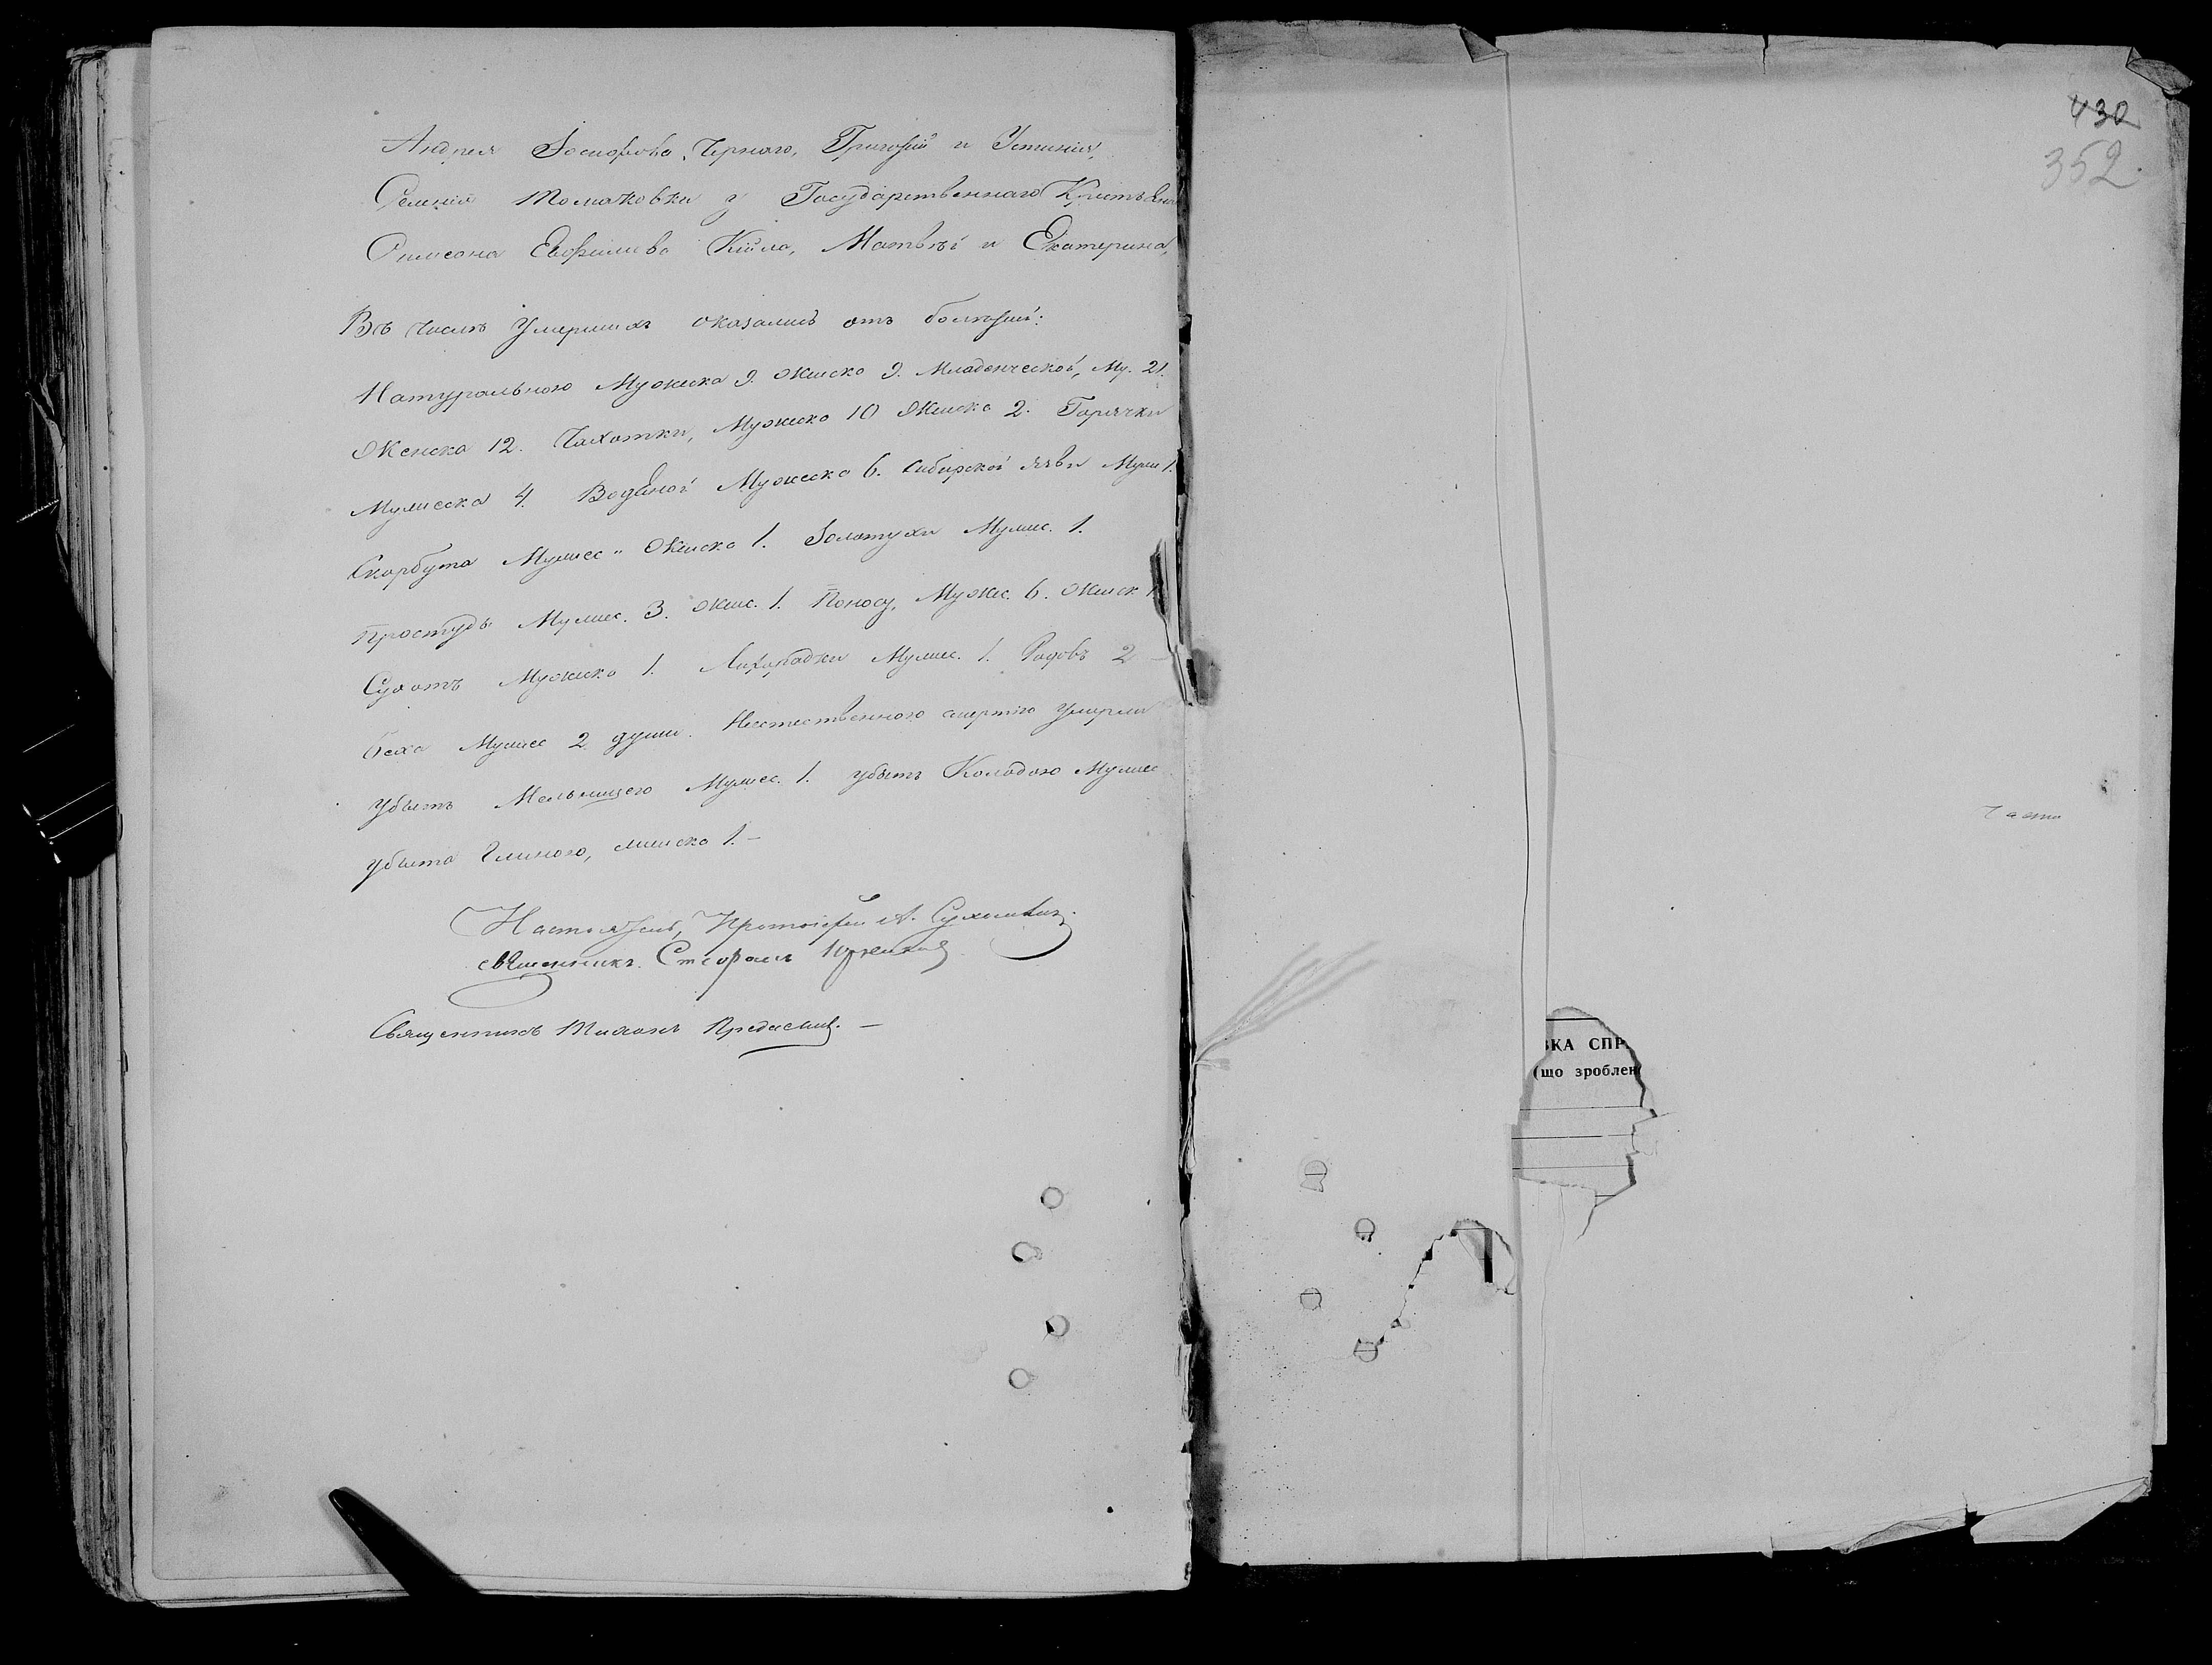 Андрея Іосифова Чернаго, Григорій и Устинія,
Селенія Томаковки у Государственнаго Крестьяни
Симеона Евфимова Кійло, Матвѣй и Екатерина,
Въ числѣ Умершихъ оказались отъ болѣзней:
Натуральною Мужеска 9. Женска 9. Младенческой, Му. 21.
Женска 12. Чахотки, Мужеска 10 Женска 2. Горячки
Мужеска 4. Водяной Мужеска 6. Сибирской язвы Муж 1.
Скорбута Мужес " Женска 1. Золотухи Мужес. 1.
Простуды Мужес. 3. Женс. 1. Поносу, Мужес. 6. Женск 1
Сухотъ Мужеска 1. Лихорадки Мужес. 1. Родовъ 2 —
Мужес 2 души. Неестественною смертію умерли
Убитъ Мельницею Мужес. 1. убитъ Колодою Мужес
убита Глиною, женска 1. —
Настоятель, Протоіерей А.
священникъ Стефанъ
Священникъ Тихонъ
430
352.
ВКА СПР
(що зроблен